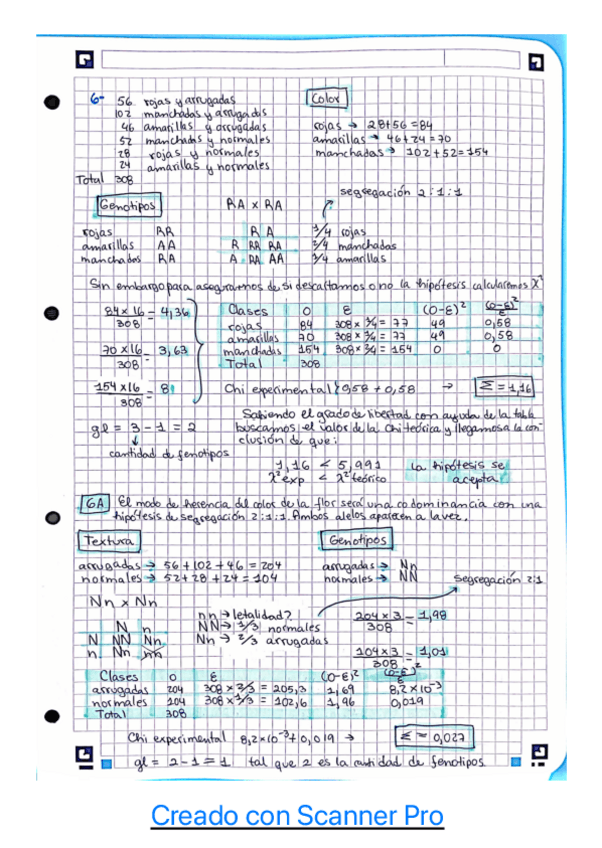 6- 56 rojas y arrugadas
102 manchadas y arrugadas
46 amarillas y arrugadas
52 manchadas y normales
28 rojas y normales
24 amarillas y normales
Total 308
Color
rojas → 28+56 = 84
amarillas → 46+24 = 70
manchadas → 102+52 = 154
segregación 2:1:1
Genotipos
RA x RA
rojas RR
amarillas AA
manchados RA
R A
R RR RA
A RA AA
1/4 rojas
2/4 manchadas
1/4 amarillas
Sin embargo para asegurarnos de si descartamos o no la hipótesis calcularemos X²
84x16/308 = 4,36
70x16/308 = 3,63
154x16/308 = 8
Clases O E (O-E)² (O-E)²/E
rojas 84 308x 1/4 = 77 49 0,58
amarillas 70 308x 1/4 = 77 49 0,58
manchadas 154 308x 2/4 = 154 0 0
Total 308
Chi experimental 0,58 + 0,58 → Σ = 1,16
gl = 3 - 1 = 2
cantidad de fenotipos
Sabiendo el grado de libertad con ayuda de la tabla
buscamos el valor de la Chi teórica y llegamos a la con-
clusión de que:
1,16 < 5,991
X²exp < X²teórico
la hipótesis se
acepta
6A El modo de herencia del color de la flor será una codominancia con una
hipótesis de segregación 2:1:1. Ambos alelos aparecen a la vez.
Textura
arrugadas → 56 + 102 + 46 = 204
normales → 52 + 28 + 24 = 104
Genotipos
arrugadas → Nn
normales → NN
segregación 2:1
Nn x Nn
N n
N NN Nn
n Nn nn
nn → letalidad?
NN → 1/3 normales
Nn → 2/3 arrugadas
204x3/308 = 1,98
104x3/308 = 1,01
Clases O E (O-E)² (O-E)²/E
arrugadas 204 308x 2/3 = 205,3 1,69 8,2x10⁻³
normales 104 308x 1/3 = 102,6 1,96 0,019
Total 308
Chi experimental 8,2x10⁻³ + 0,019 → Σ = 0,027
gl = 2 - 1 = 1 tal que 2 es la cantidad de fenotipos
Creado con Scanner Pro